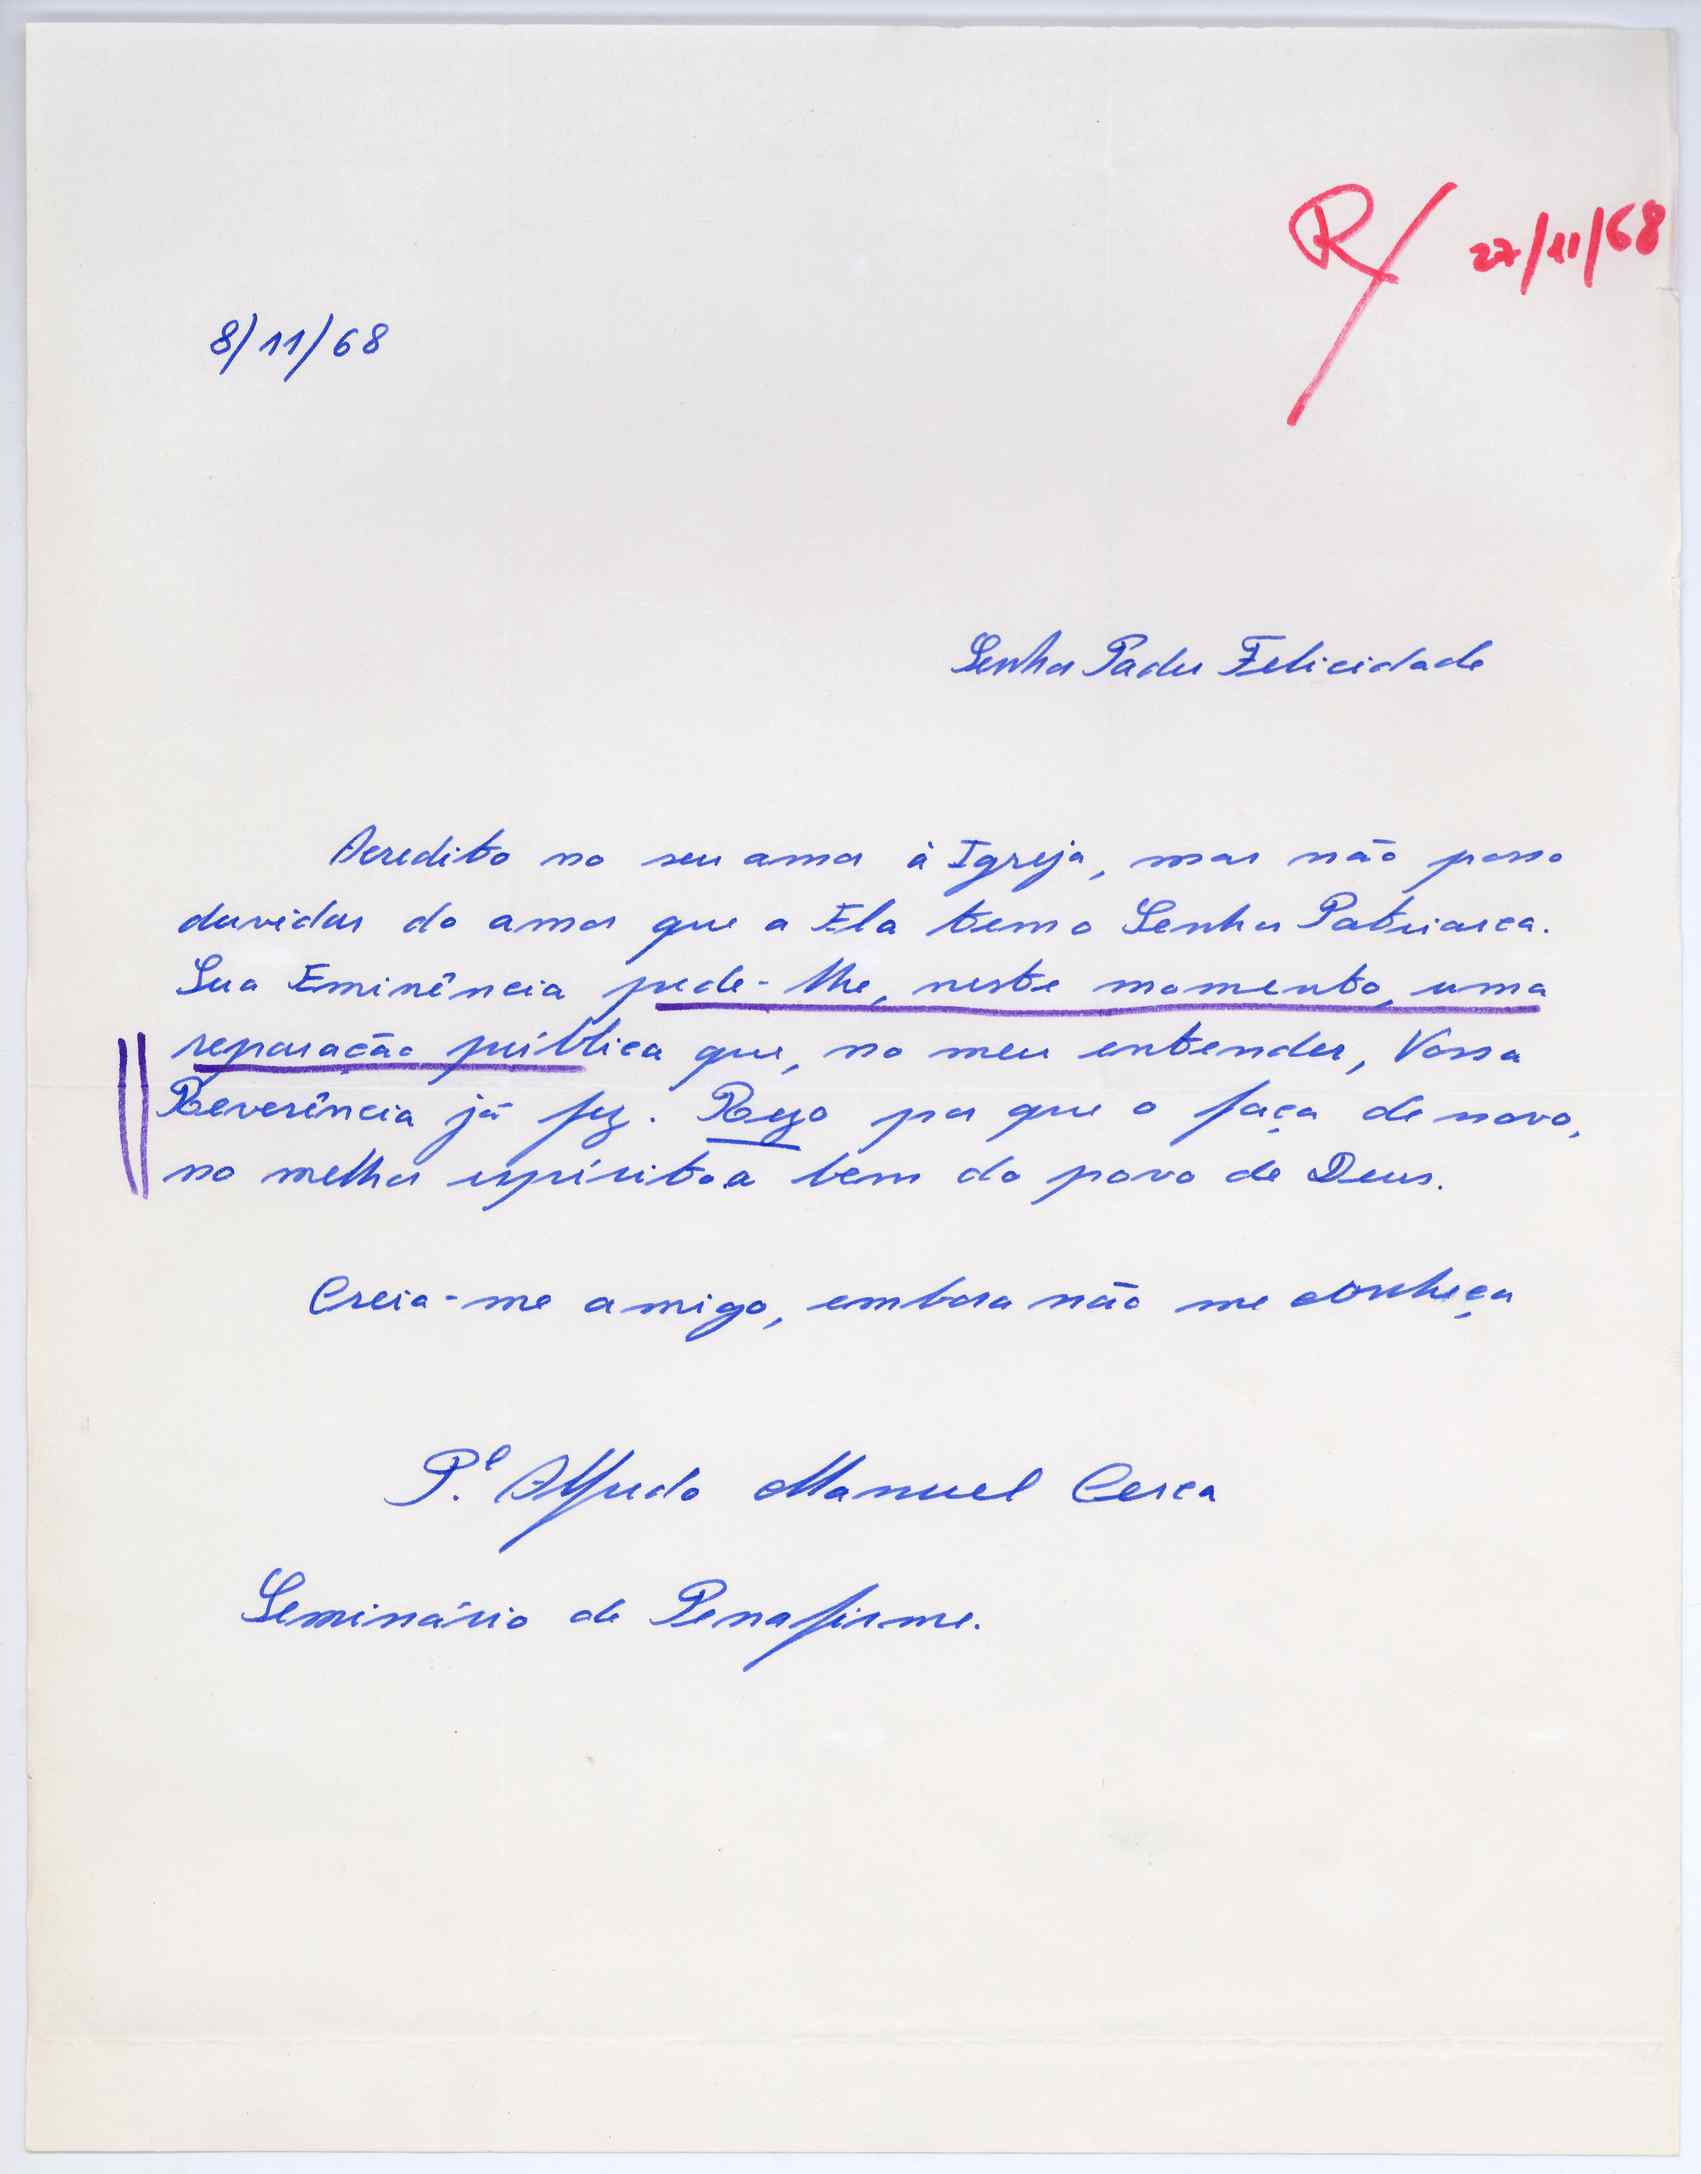 R/ 27/11/68
8/11/68
Senhor Padre Felicidade
Acredito no seu amor à Igreja, mas não posso
duvidar do amor que a Ela tem o Senhor Patriarca.
Sua Eminência pede-lhe, neste momento, uma
reparação pública que, no meu entender, Vossa
Reverência já fez. Rezo por que o faça de novo,
no melhor espírito a bem do povo de Deus.
Creia-me amigo, embora não me conheça
P.e Alfredo Manuel Cerca
Seminário de Penafirme.